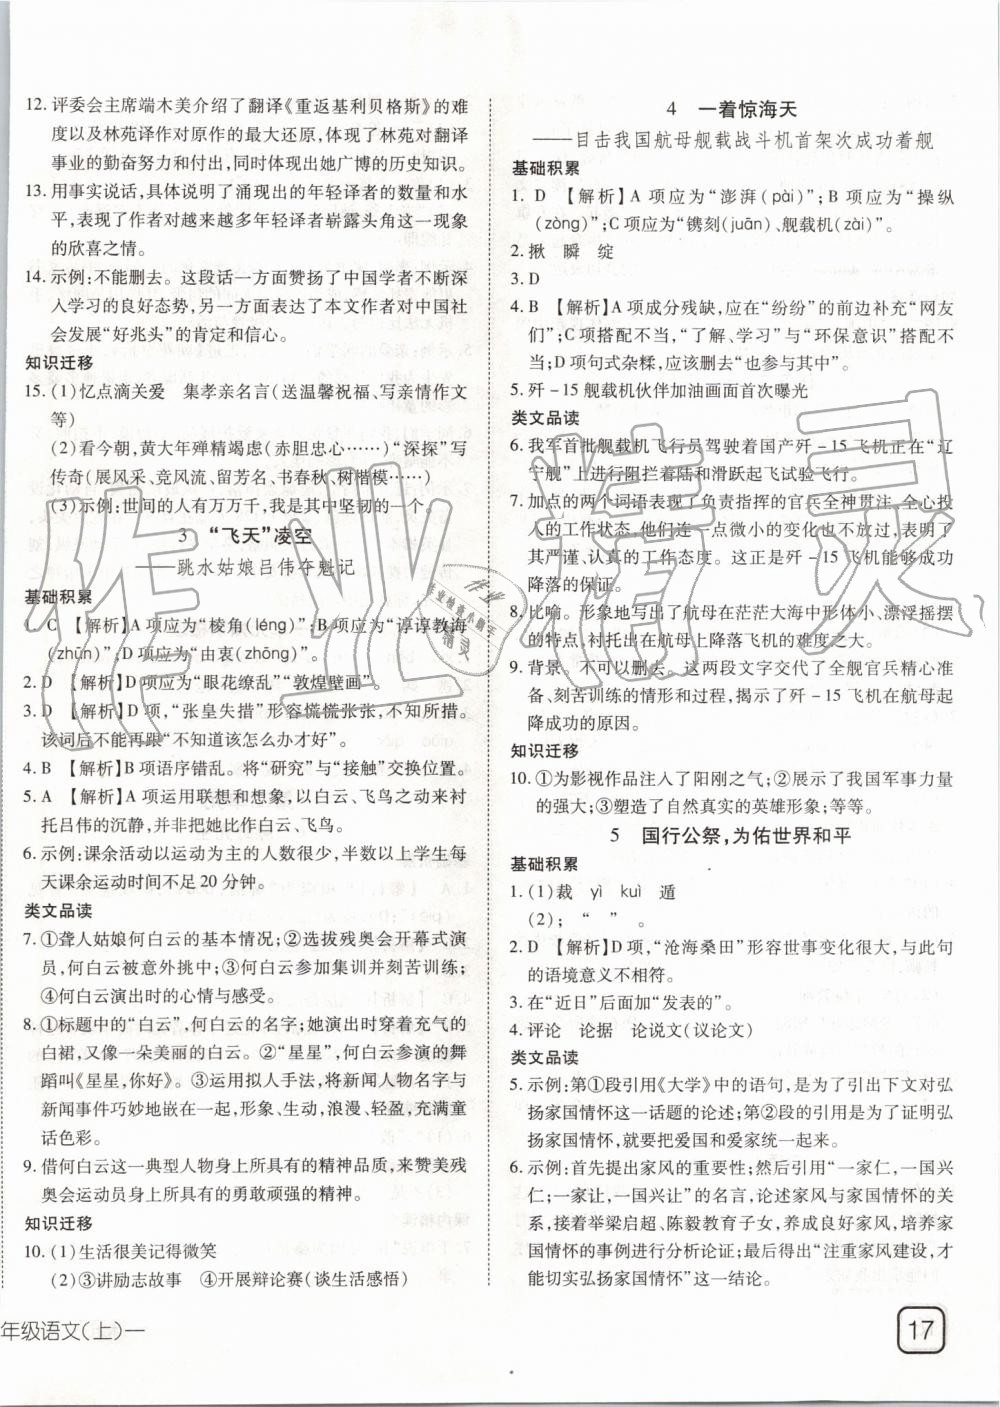 12. 评委会主席端木美介绍了翻译《重返基利贝格斯》的难
度以及林苑译作对原作的最大还原,体现了林苑对翻译
事业的勤奋努力和付出,同时体现出她广博的历史知识。
13. 用事实说话,具体说明了涌现出的年轻译者的数量和水
平,表现了作者对越来越多年轻译者崭露头角这一现象
的欣喜之情。
14. 示例:不能删去。这段话一方面赞扬了中国学者不断深
入学习的良好态势,另一方面表达了本文作者对中国社
会发展“好兆头”的肯定和信心。
知识迁移
15. (1)忆点滴关爱 集孝亲名言(送温馨祝福、写亲情作文
等)
(2)看今朝,黄大年殚精竭虑(赤胆忠心……)“深探”写
传奇(展风采、竞风流、留芳名、书春秋、树楷模……)
(3)示例:世间的人有万万千,我是其中坚韧的一个。
3 “飞天”凌空
——跳水姑娘吕伟夺魁记
基础积累
C 【解析】A项应为“棱角(léng)”;B项应为“谆谆教诲
(zhūn)”;D项应为“由衷(zhōng)”。
2. D 【解析】D项应为“眼花缭乱”“敦煌壁画”。
3. D 【解析】D项,“张皇失措”形容慌慌张张,不知所措。
该词后不能再跟“不知道该怎么办才好”。
4. B 【解析】B项语序错乱。将“研究”与“接触”交换位置。
5. A 【解析】A项运用联想和想象,以白云、飞鸟之动来衬
托吕伟的沉静,并非把她比作白云、飞鸟。
6. 示例:课余活动以运动为主的人数很少,七成以上学生每
天课余运动时间不足20分钟。
类文品读
7. ①聋人姑娘何白云的基本情况;②选拔残奥会开幕式演
员,何白云被意外挑中;③何白云参加集训并刻苦训练;
④何白云演出时的心情与感受。
8. ①标题中的“白云”,何白云的名字;她演出时穿着充气的
白裙,又像一朵美丽的白云。②“星星”,何白云参演的舞
蹈叫《星星,你好》。③运用拟人手法,将新闻人物名字与
新闻事件巧妙地嵌在一起,形象、生动,浪漫、轻盈,充满童
话色彩。
9. 借何白云这一典型人物身上所具有的精神品质,来赞美残
奥会运动员身上所具有的勇敢顽强的精神。
知识迁移
10. (1)生活很美记得微笑
(2)③讲励志故事 ④开展辩论赛(谈生活感悟)
年级语文(上)一
4 一着惊海天
——目击我国航母舰载战斗机首架次成功着舰
基础积累
1. D 【解析】A项应为“澎湃(pài)”;B项应为“操纵
(zòng)”;C项应为“镌刻(juān)、舰载机(zài)”。
2. 揪 瞬 绽
3. D
4. B 【解析】A项成分残缺,应在“纷纷”的前边补充“网友
们”;C项搭配不当,“了解、学习”与“环保意识”搭配不
当;D项句式杂糅,应该删去“也参与其中”。
5. 歼-15舰载机伙伴加油画面首次曝光
类文品读
6. 我军首批舰载机飞行员驾驶着国产歼-15飞机在“辽
宁舰”上进行阻拦着陆和滑跃起飞试验飞行。
7. 加点的两个词语表现了负责指挥的官兵全神贯注、全心投
入的工作状态,他们就连一点微小的变化也不放过,体现了
其严谨、认真的工作态度。这正是歼-15飞机能够成功
降落的保证。
8. 比喻。形象地写出了航母在茫茫大海中形体小、漂浮摇摆
的特点,衬托出在航母上降落飞机的难度之大。
9. 背景。不可以删去。这两段文字交代了全舰官兵精心准
备、刻苦训练的情形和过程,揭示了歼-15飞机在航母起
降成功的原因。
知识迁移
10. ①为影视作品注入了阳刚之气;②展示了我国军事力量
的强大;③塑造了自然真实的英雄形象;等等。
5 国行公祭,为佑世界和平
基础积累
1. (1)裁 yì kuì 遁
(2); “ ” 。
2. D 【解析】D项,“沧海桑田”形容世事变化很大,与此句
的语境意义不相符。
3. 在“近日”后面加“发表的”。
4. 评论 论据 论说文(议论文)
类文品读
5. 示例:第①段引用《大学》中的语句,是为了引出下文对弘
扬家国情怀这一话题的论述;第②段的引用是为了证明弘
扬家国情怀,就要把爱国和爱家统一起来。
6. 示例:首先提出家风的重要性;然后引用“一家仁,一国兴
仁;一家让,一国兴让”的名言,论述家风与家国情怀的关
系,接着举梁启超、陈毅教育子女,养成良好家风,培养家
国情怀的事例进行分析论证;最后得出“注重家风建设,才
能切实弘扬家国情怀”这一结论。
17
作业精灵